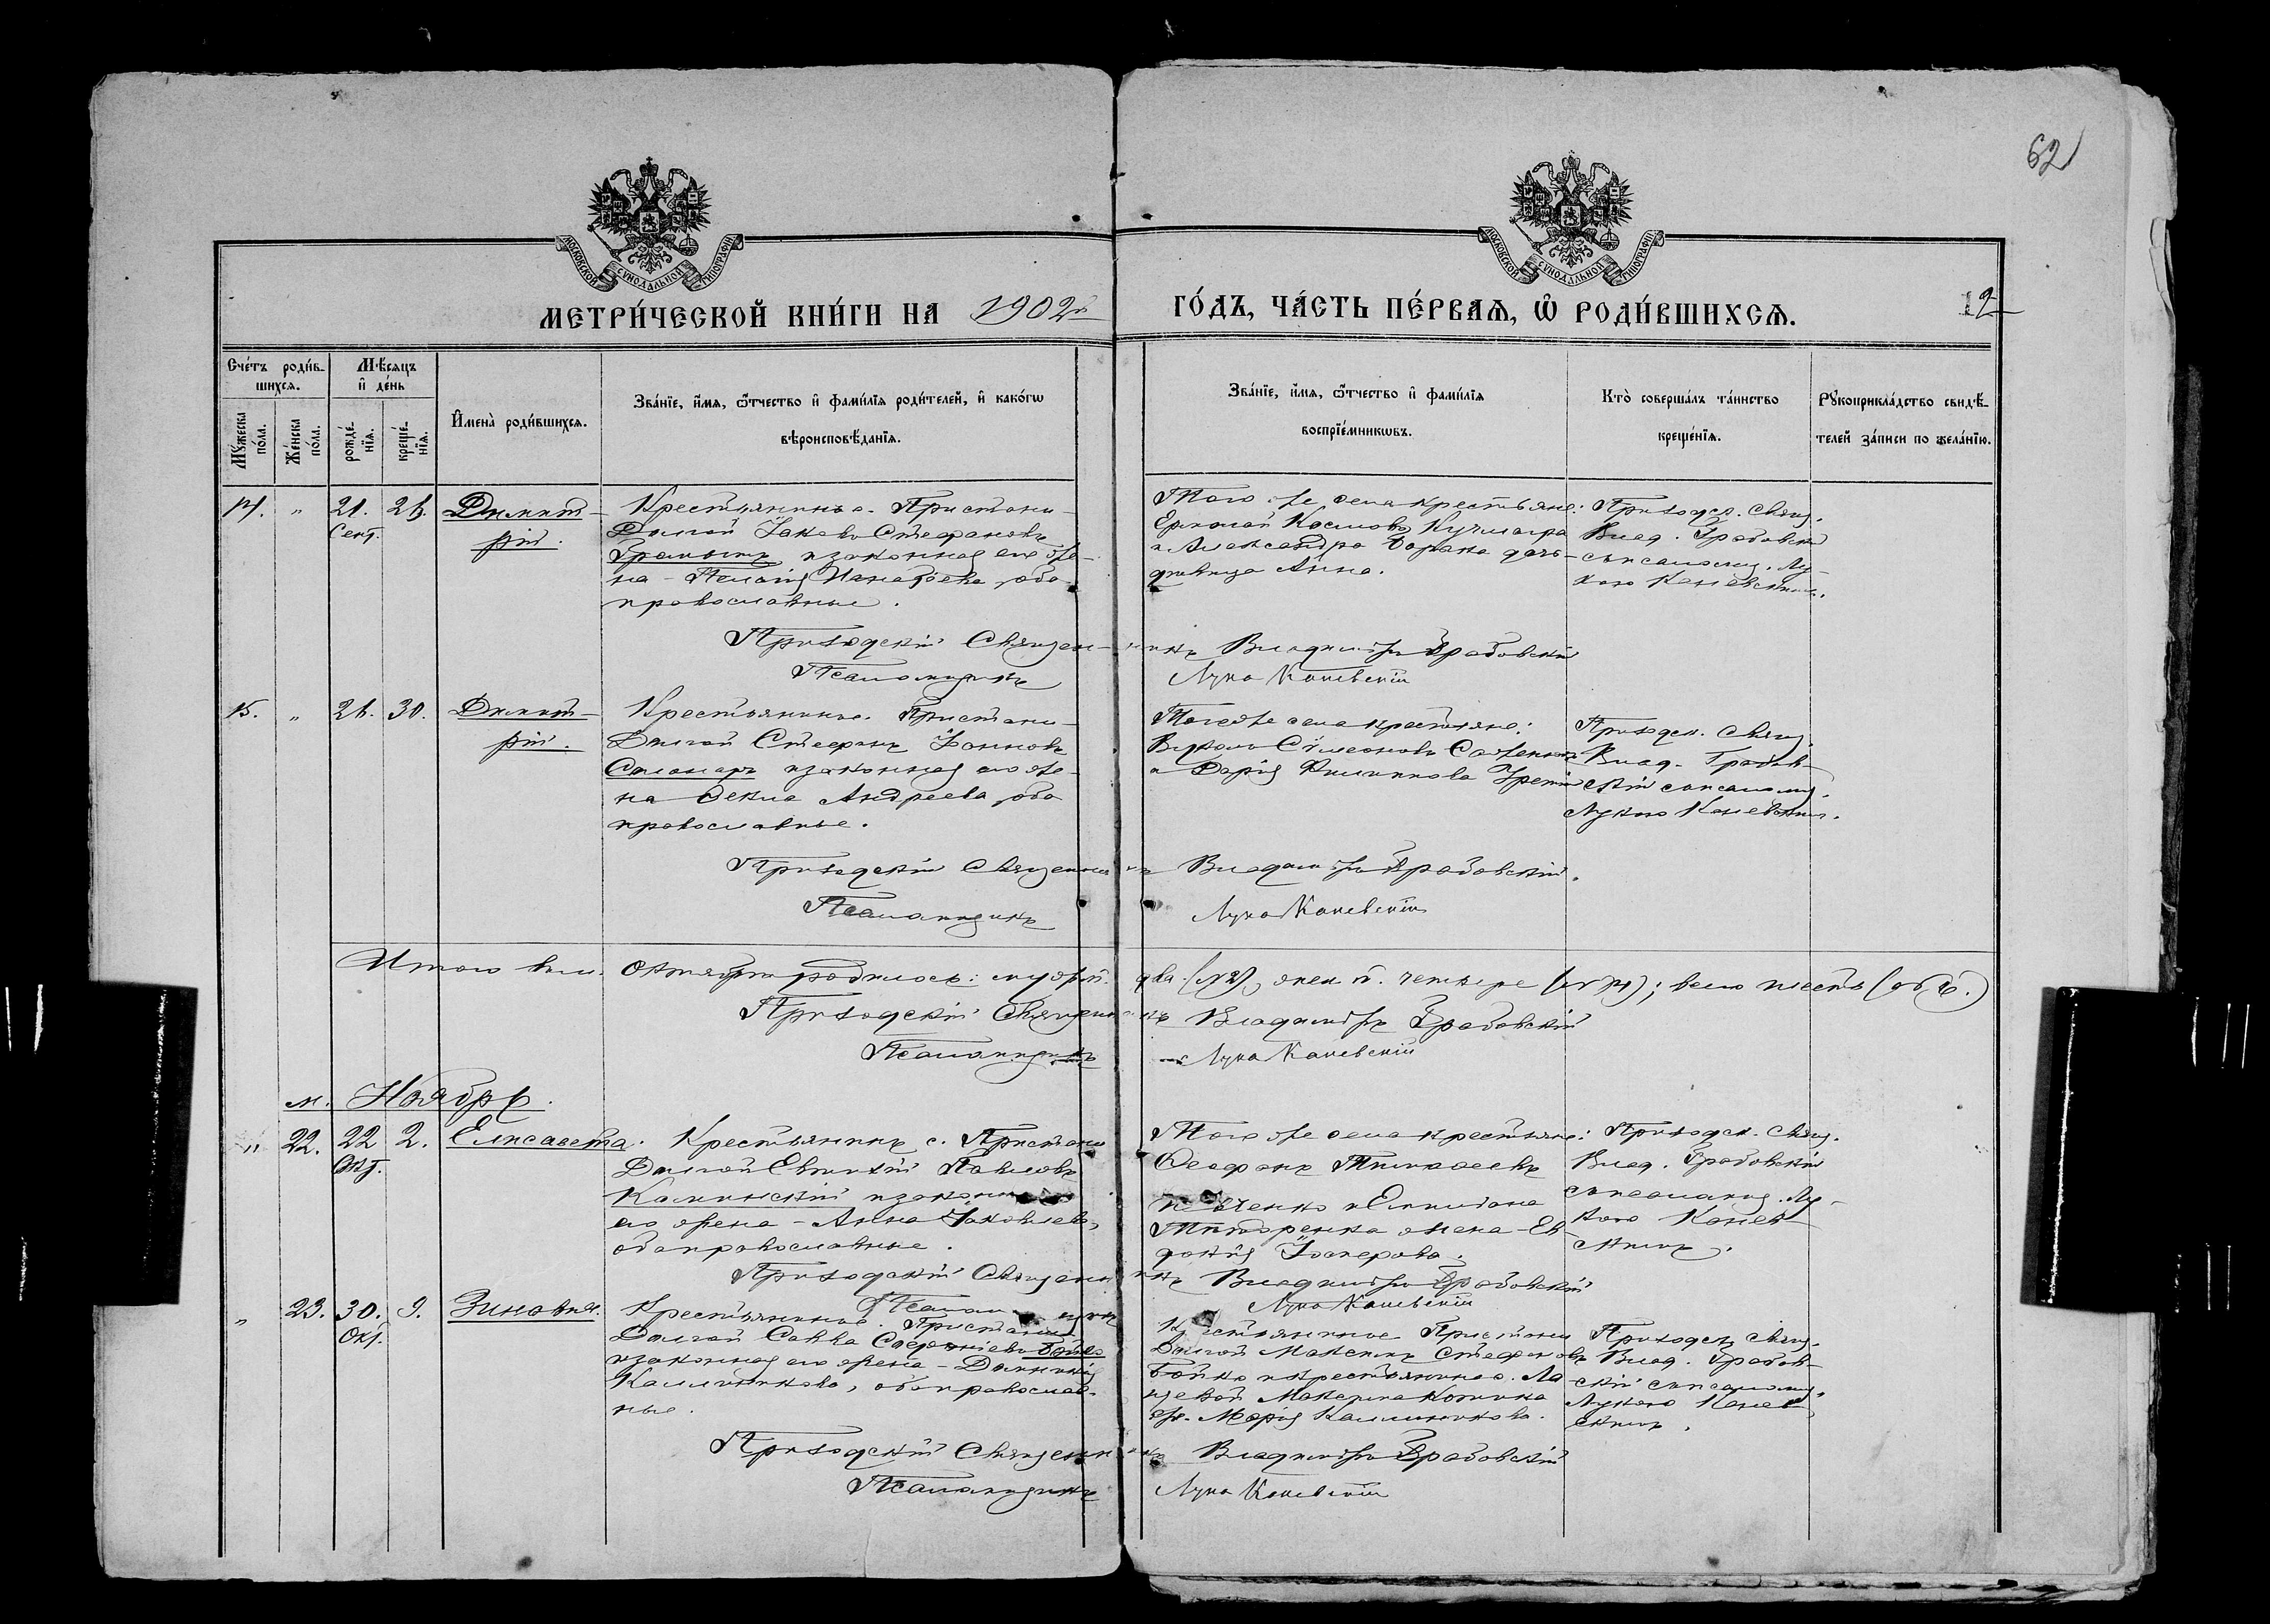 62
МОСКОВСКОЙ СУНОДАЛЬНОЙ ТИПОГРАФІИ
МОСКОВСКОЙ СУНОДАЛЬНОЙ ТИПОГРАФІИ
МЕТРИ́ЧЕСКОЙ КНИ́ГИ НА 1902
ГО́ДЪ, ЧА́СТЬ ПЕ́РВАѦ, Ѡ҆ РОДИ́ВШИХСѦ.
12
Сче́тъ роди́вшихсѧ.
Мꙋ́жеска по́ла.
Же́нска по́ла.
Мѣ́сяцъ и҆ де́нь
рожде́нїѧ.
креще́нїѧ.
И҆мена̀ роди́вшихсѧ.
Зва́нїе, и҆́мѧ, ѻ҆́тчество и҆ фами́лїѧ роди́телей, и҆ како́гѡ
вѣроисповѣ́данїѧ.
Зва́нїе, и҆́мѧ, ѻ҆́тчество и҆ фами́лїѧ
воспрїе́мникѡвъ.
Кто̀ соверша́лъ та́инство
креще́нїѧ.
Рꙋкоприкла́дство свидѣ́телей за́писи по жела́нїю.
14. " 21. Сент. 26. Димитрій.
Крестьянинъ с. Пристани-
Дилгой Іаковъ Стефановъ
и законная его же-
на - Пелагія , оба
православные.
Того же села крестьяне:
Ермолай Космовъ
и Александра дочь
девица Анна.
Приходск. Свящ.
Влад. Грабовскій
съ псаломщ. Лу-
кою Каневскимъ.
Приходскій Священникъ Владиміръ Грабовскій
Псаломщикъ Лука Каневскій
15. " 26. 30. Димитрій.
Крестьянинъ с. Пристани-
Дилгой Стефанъ Іоанновъ
и законная его же-
на Ѳекла Андреева, оба
православные.
Того же села крестьяне:
Симеоновъ
и Дарія Филиппова
Приходск. Свящ.
Влад. Грабов-
скій съ псаломщ.
Лукою Каневским.
Приходскій Священникъ Владиміръ Грабовскій.
Псаломщикъ Лука Каневскій
Итого въ м. Октябрѣ родилось: муж. п. два (№2), жен. п. четыре (№4); всего шесть (об. 6.)
Приходскій Священникъ Владиміръ Грабовскій
Псаломщикъ Лука Каневскій
м. Ноябрь.
" 22. 22 Окт. 2. Елисавета.
Крестьянинъ с. Пристани
Дилгой Евѳимій Павловъ
Каминскій и законная
его жена - Анна Іаковлева,
оба православные.
Того же села крестьяне:
Ѳеофанъ Тимоѳеевъ
жена Ев-
докія
Приходск. Свящ.
Влад. Грабовскій
съ псаломщ. Лу-
кою Канев-
скимъ.
Приходскій Священникъ Владиміръ Грабовскій
Псаломщикъ Лука Каневскій
" 23. 30. Окт. 9. Зиновія.
Крестьянинъ с. Пристани
Дилгой Савва Бойко
и законная его жена - Домникія
Каллиникова, оба православ-
ные.
Крестьянинъ с. Пристани
Дилгой Максимъ Стефановъ
Бойко и крестьянина с. Ла-
жен. Марія Каллиникова.
Приходск. Свящ.
Влад. Грабов-
скій съ псаломщ.
Лукою Канев-
скимъ.
Приходскій Священникъ Владиміръ Грабовскій
Псаломщикъ Лука Каневскій